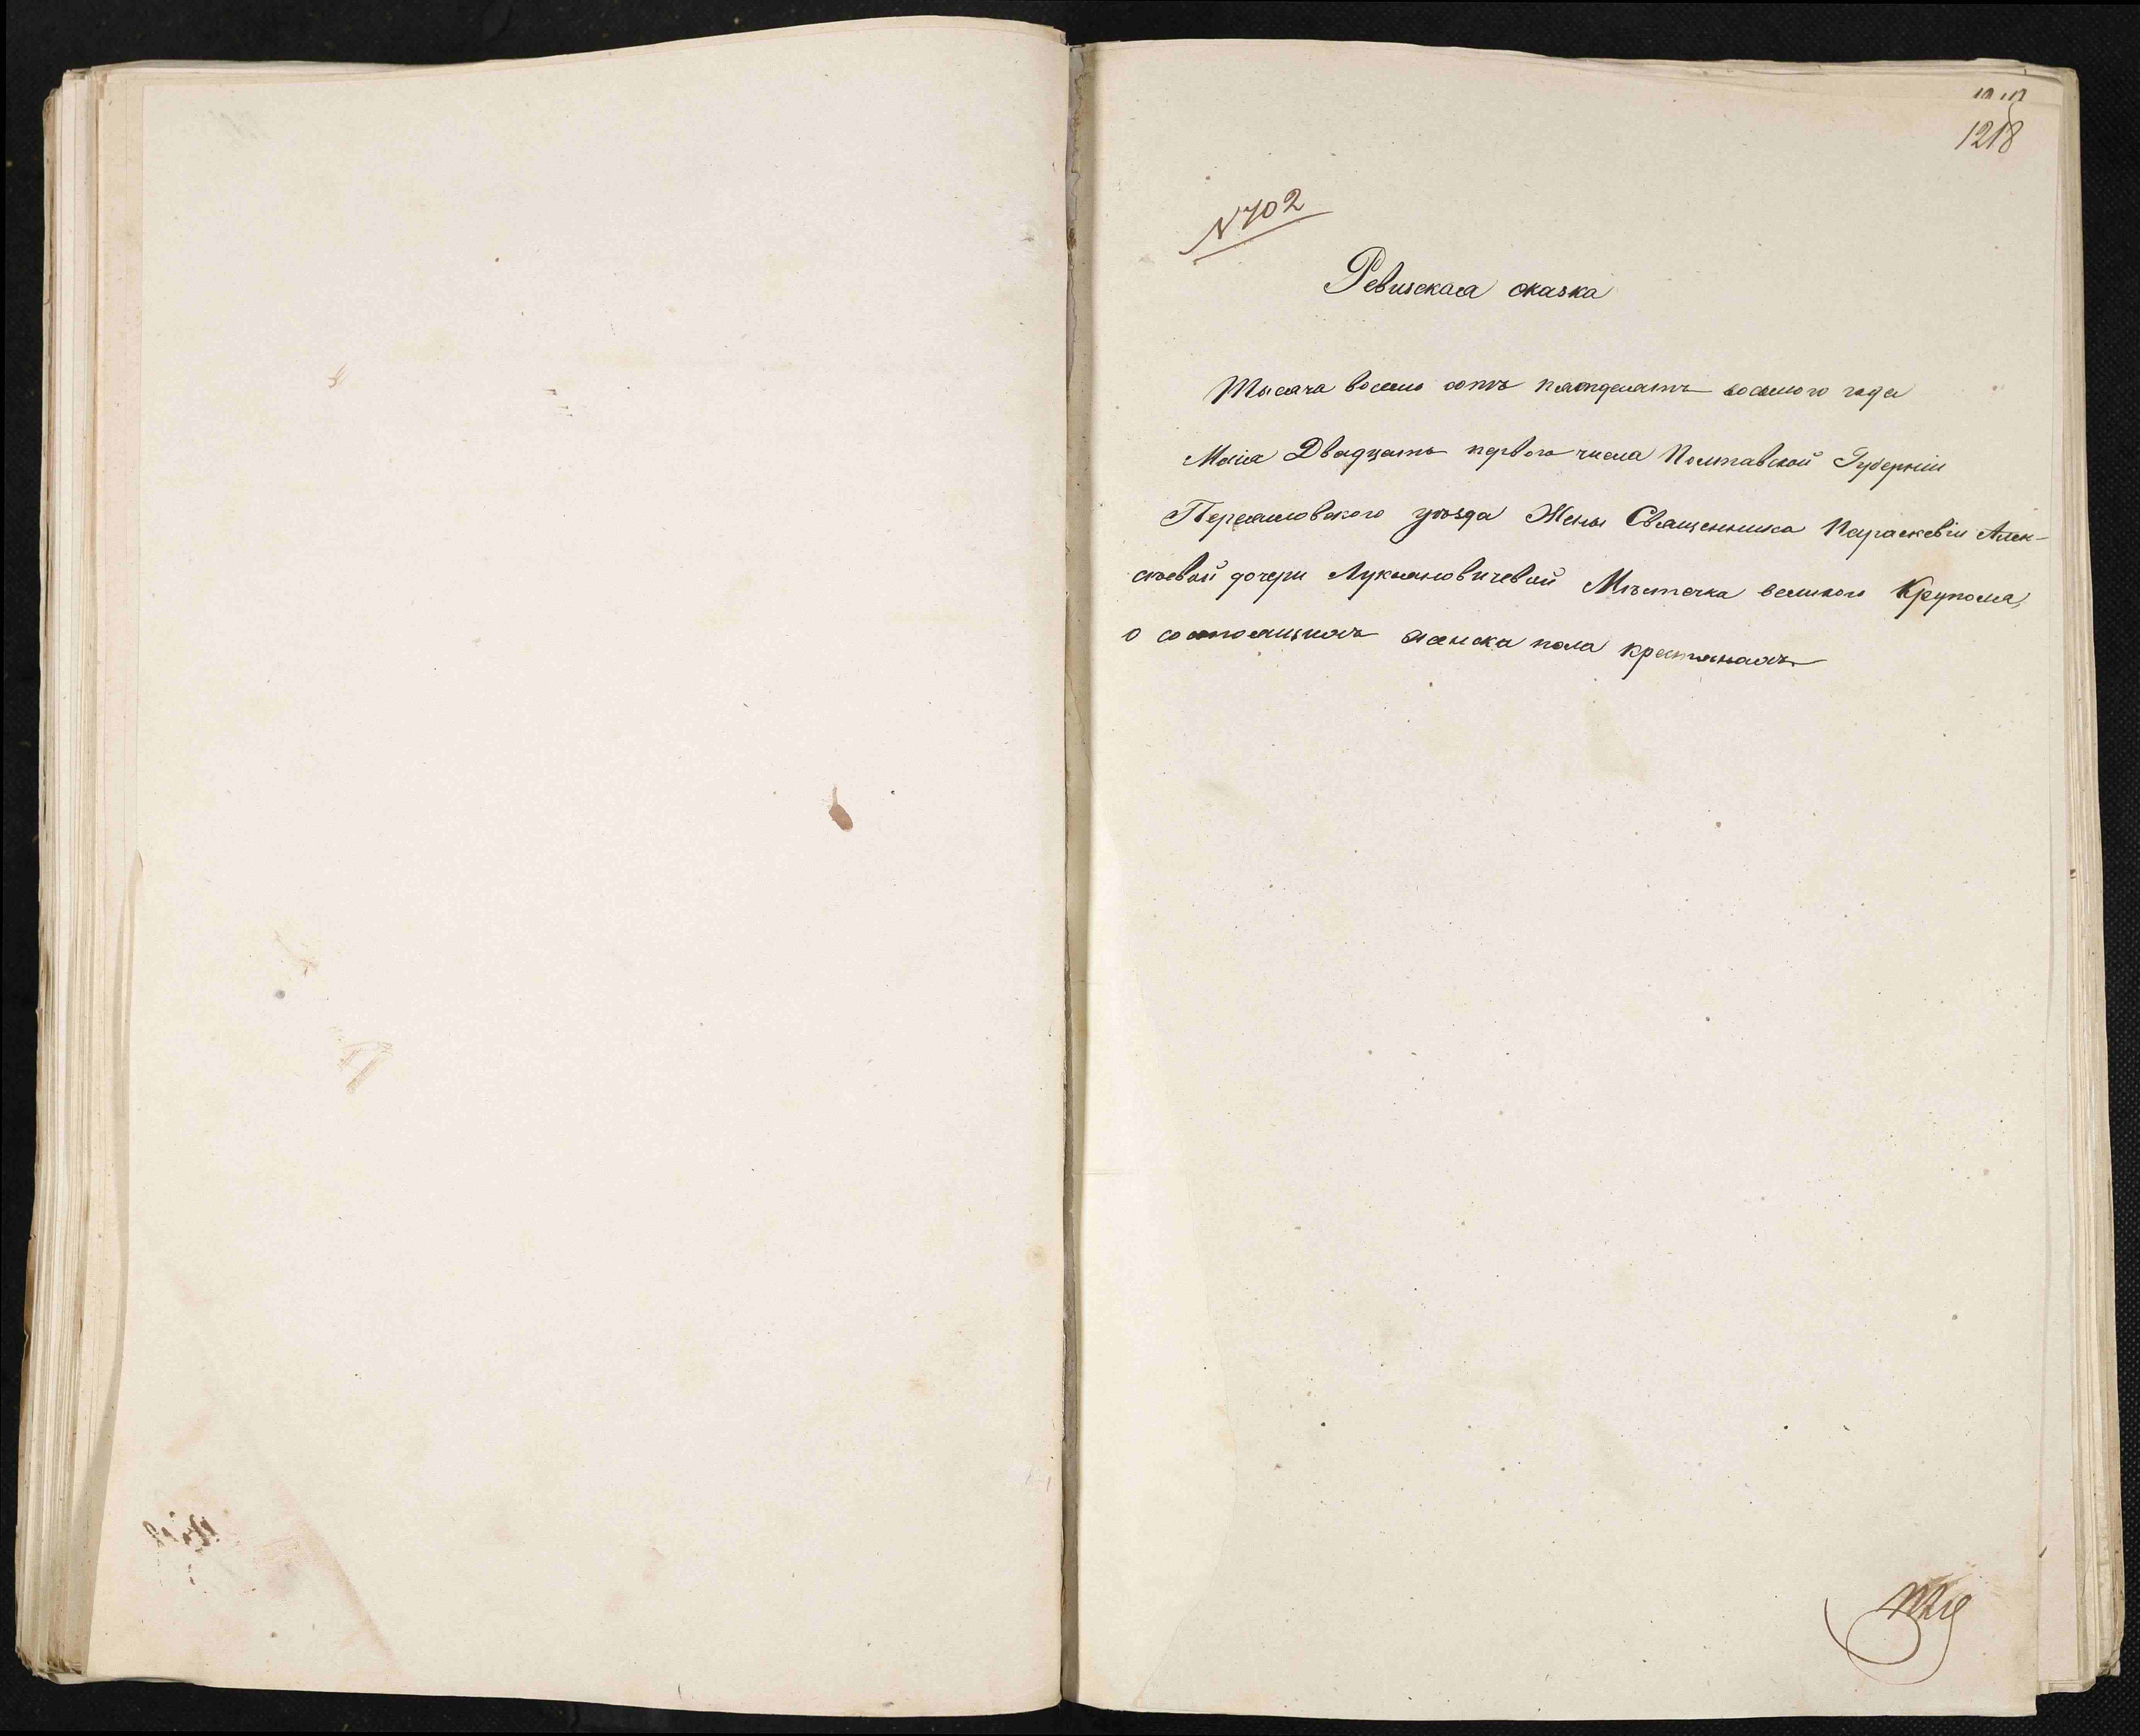 1218
№ 702
Ревиская сказка
Тысяча восемь сотъ пятдесятъ восьмого года
Маія Двадцать первого числа Полтавской Губерніи
Переясловского уѣзда Жены Священника Параскевіи Алек-
сѣевой дочери Лукіановичевой Мѣстечка великого Крупола,
о состоящихъ женска пола крестянахъ